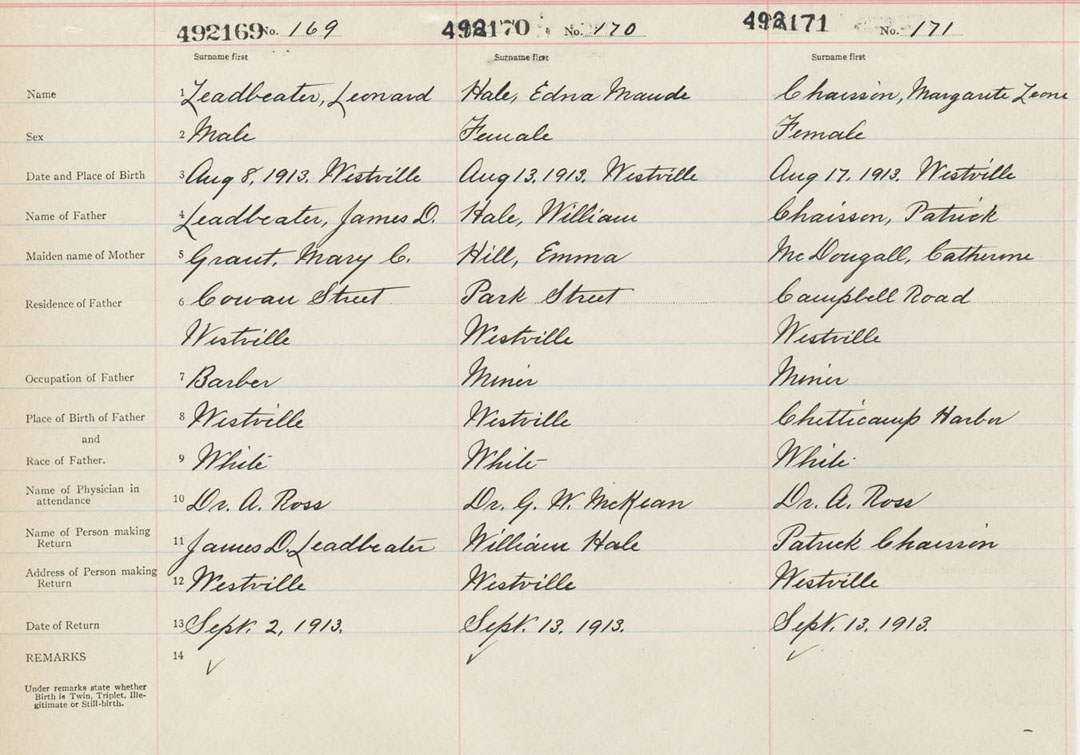 492169 No. 169 492170 No. 170 492171 No. 171
Surname first Surname first Surname first
Name 1 Leadbeater, Leonard Hale, Edna Maude Chaisson, Margarite Leone
Sex 2 Male Female Female
Date and Place of Birth 3 Aug 8, 1913. Westville Aug 13, 1913. Westville Aug 17, 1913. Westville
Name of Father 4 Leadbeater, James D. Hale, William Chaisson, Patrick
Maiden name of Mother 5 Grant, Mary C. Hill, Emma McDougall, Catherine
Residence of Father 6 Cowan Street Park Street Campbell Road
Westville Westville Westville
Occupation of Father 7 Barber Miner Miner
Place of Birth of Father 8 Westville Westville Chetticamp Harbor
and
Race of Father. 9 White White White
Name of Physician in
attendance 10 Dr. A. Ross Dr. G. W. McKean Dr. A. Ross
Name of Person making
Return 11 James D. Leadbeater William Hale Patrick Chaisson
Address of Person making
Return 12 Westville Westville Westville
Date of Return 13 Sept. 2, 1913. Sept. 13, 1913. Sept. 13, 1913.
REMARKS 14
Under remarks state whether
Birth is Twin, Triplet, Ille-
gitimate or Still-birth.